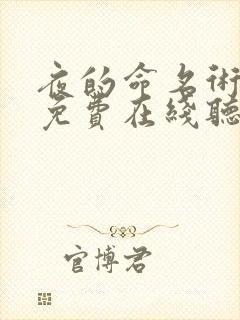 夜的命名術
免費在綫聽
官博君